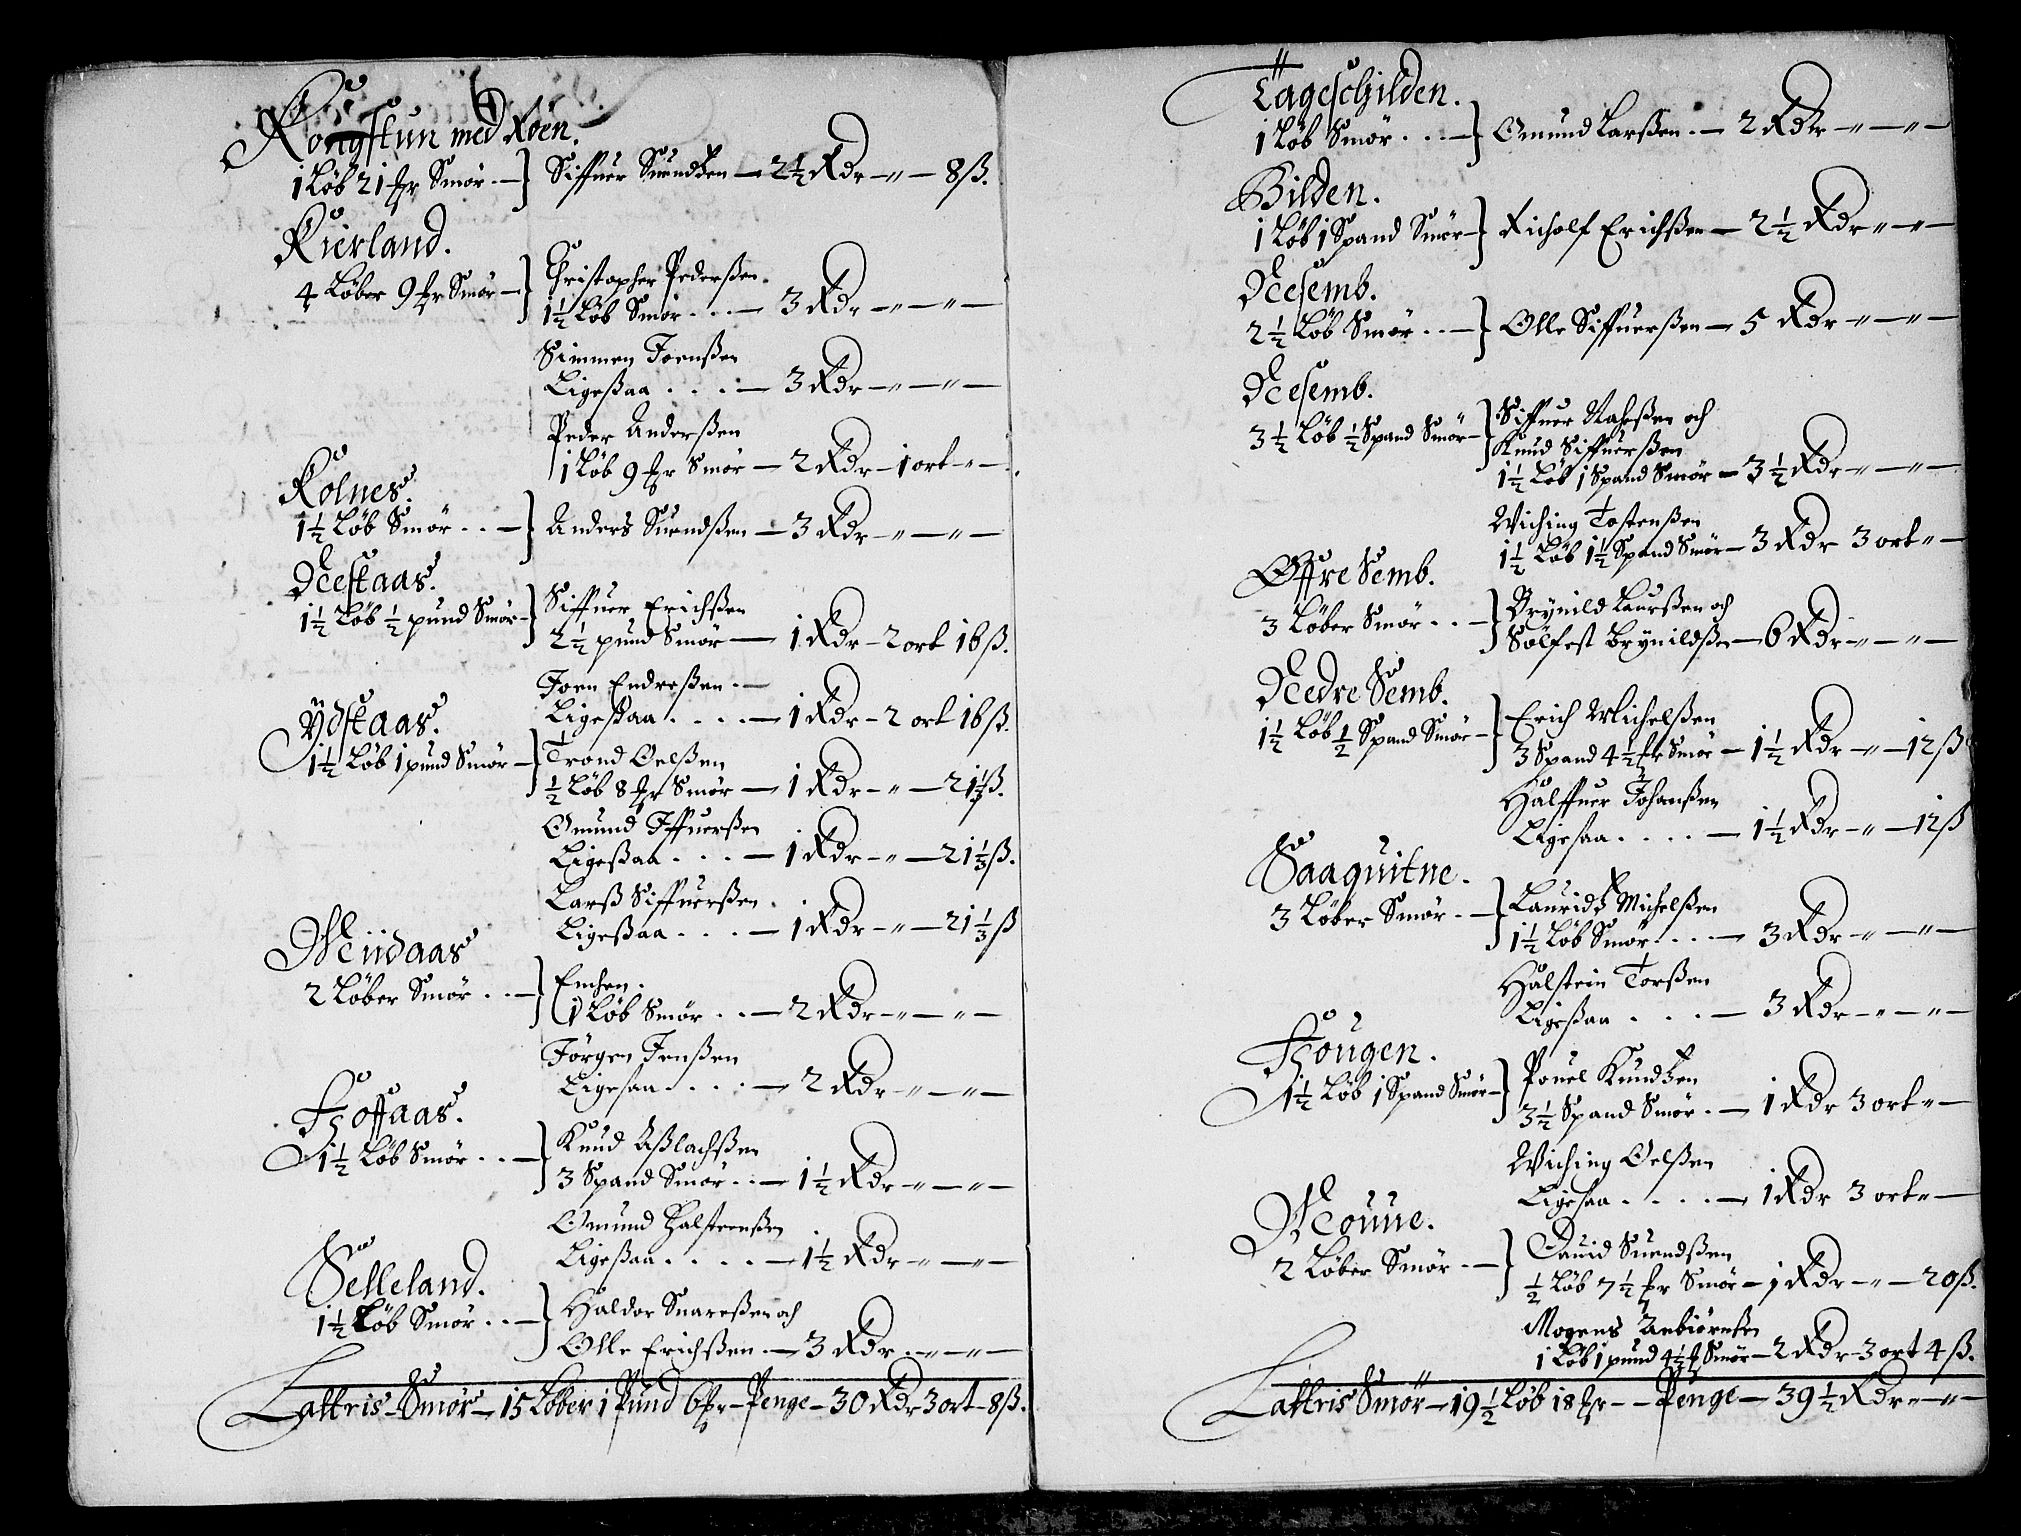 Kongstun med Roen.
1 Løb 21 ℔r Smør. — } Siffuer Suendsen — 2½ Rdr — " — 8 ß.
Kierland.
4 Løber 9 ℔r Smør — } Christopher Pederßen.
1½ Løb Smør . . . — 3 Rdr — " — " —
Simmen Joenßen
Ligeßaa . . . — 3 Rdr — " — " —
Peder Anderßen
1 Løb 9 ℔r Smør — 2 Rdr — 1 ort " —
Rolnes.
1½ Løb Smør . . — } Anders Suendßen — 3 Rdr — " — " —
Neestaas.
1½ Løb ½ pund Smør — } Siffuer Erichßen
2½ pund Smør — 1 Rdr — 2 ort 16 ß.
Joen Endreßen . —
Ligeßaa . . . . — 1 Rdr — 2 ort 16 ß.
Ydstaas.
1½ Løb 1 pund Smør — } Trond Oelßen
½ Løb 8 ℔r Smør — 1 Rdr — " — 21⅓ ß.
Omund Iffuerßen
Ligeßaa . . . — 1 Rdr — " — 21⅓ ß.
Larß Siffuerßen .
Ligeßaa . . . — 1 Rdr — " — 21⅓ ß
Miidaas
2 Løber Smør . . — } Enchen .
1 Løb Smør . . — 2 Rdr — " — " —
Jørgen Jenßen
Ligesaa . . . . — 2 Rdr — " — " —
Hoffaas.
1½ Løb Smør . . — } Knud Aßlachßen
3 Spand Smør . . — 1½ Rdr — " — " —
Omund Halsteenßen
Ligeßaa . . . . — 1½ Rdr — " — " —
Selleland.
1½ Løb Smør . . — } Haldor Snareßen och
Olle Erichßen . — 3 Rdr — " — " —
Lattris — Smør — 15 Løber 1 Pund 6 ℔r — Penge — 30 Rdr 3 ort — 8 ß.
Tageschilden.
1 Løb Smør . . . — } Omund Larßen . — 2 Rdr — " — " —
Bilden.
1 Løb 1 Spand Smør — } Richolf Erichßen — 2½ Rdr " — " —
Neesemb.
2½ Løb Smør . . — } Olle Siffuerßen — 5 Rdr — " — " —
Neesemb.
3½ Løb ½ Spand Smør — } Siffuer Nahßen och
Knud Siffuerßen
1½ Løb 1 Spand Smør — 3½ Rdr — " — " —
Wiching Tostenßen
1½ Løb 1½ Spand Smør — 3 Rdr 3 ort " —
Øffre Semb.
3 Løber Smør . . — } Brynild Laurßen och
Sølfest Brynildßen — 6 Rdr — " — " —
Nedre Semb.
1½ Løb ½ Spand Smør — } Erich Michelßen
3 Spand 4½ ℔r Smør — 1½ Rdr — " — 12 ß
Halffuer Johanßen
Ligesaa . . . . — 1½ Rdr — " — 12 ß
Saaquitne.
3 Løber Smør . . — } Laurids Michelßen
1½ Løb Smør . . . — 3 Rdr — " — " —
Halstein Torßen
Ligeßaa . . . — 3 Rdr — " — " —
Hougen.
1½ Løb 1 Spand Smør — } Pouel Knudsen
3½ Spand Smør . — 1 Rdr 3 ort " —
Wiching Oelßen
Ligesaa . . . . — 1 Rdr 3 ort " —
Moüne.
2 Løber Smør . . — } Dauid Suendßen
½ Løb 7½ ℔r Smør — 1 Rdr — " — 20 ß.
Mogens Anbiørnsen
1 Løb 1 pund 4½ ℔r Smør — 2 Rdr — 3 ort 4 ß.
Lattris Smør — 19½ Løb 18 ℔r — — Penge — 39½ Rdr — " —